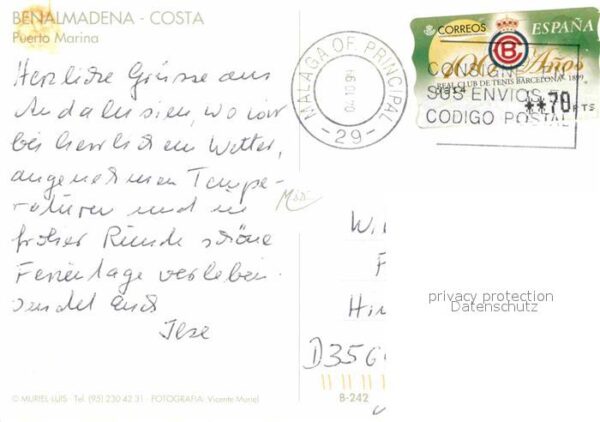 BENALMADENA - COSTA
Puerto Marina
Herzliche Grüsse aus
Andalusien, wo wir
bei herrlichem Wetter,
angenehmen Tempe-
raturen und in
froher Runde schöne
Ferientage verleben.
sendet Euch
Ilse
© MURIEL LUIS - Tel. (95) 230 42 31 - FOTOGRAFIA: Vicente Muriel
MALAGA OF. PRINCIPAL
-29-
CORREOS ESPAÑA
100 Años
REAL CLUB DE TENIS BARCELONA 1899
CONSIGNE
SUS ENVIOS
CODIGO POSTAL
**70 PTS
W
F
Hi
D356
privacy protection
Datenschutz
B-242